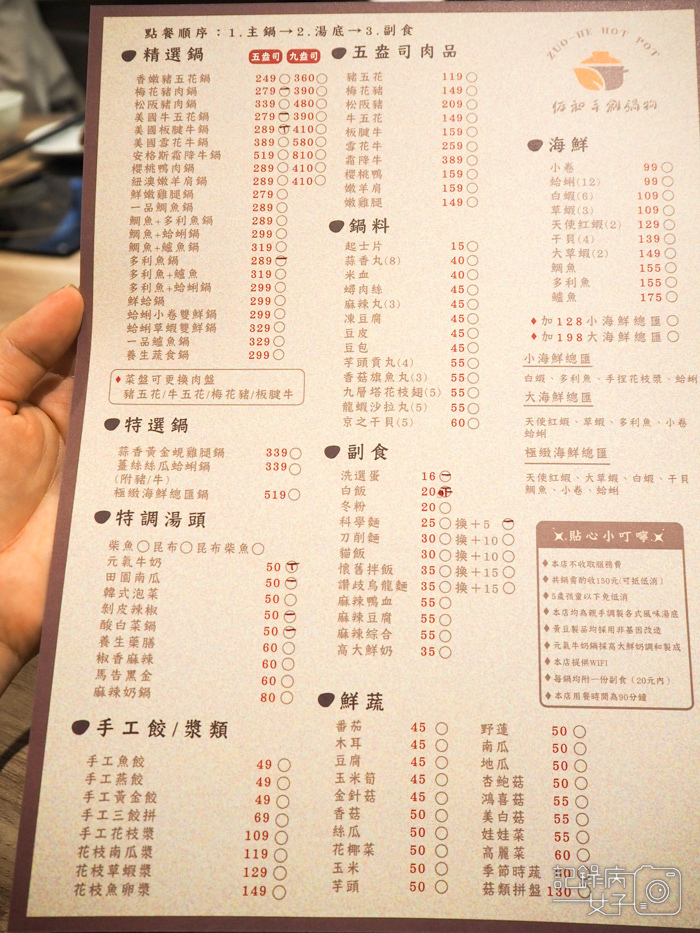 點餐順序：1.主鍋→2.湯底→3.副食
精選鍋 五盎司 九盎司
香嫩豬五花鍋 249 360
梅花豬肉鍋 279 390
松阪豬肉鍋 339 480
美國牛五花鍋 279 390
美國板腱牛鍋 289 410
美國雪花牛鍋 389 580
安格斯霜降牛鍋 519 810
櫻桃鴨肉鍋 289 410
紐澳嫩羊肩鍋 289 410
鮮嫩雞腿鍋 279
一品鯛魚鍋 289
鯛魚+多利魚鍋 289
鯛魚+蛤蜊鍋 299
鯛魚+鱸魚鍋 319
多利魚鍋 289
多利魚+鱸魚 319
多利魚+蛤蜊鍋 299
鮮蛤鍋 299
蛤蜊小卷雙鮮鍋 299
蛤蜊草蝦雙鮮鍋 329
一品鱸魚鍋 329
養生蔬食鍋 299
♦菜盤可更換肉盤
豬五花/牛五花/梅花豬/板腱牛
特選鍋
蒜香黃金蜆雞腿鍋 339
薑絲絲瓜蛤蜊鍋 339
(附豬/牛)
極緻海鮮總匯鍋 519
特調湯頭
柴魚 昆布 昆布柴魚
元氣牛奶 50
田園南瓜 50
韓式泡菜 50
剝皮辣椒 50
酸白菜鍋 50
養生藥膳 60
椒香麻辣 60
馬告黑金 60
麻辣奶鍋 80
手工餃/漿類
手工魚餃 49
手工燕餃 49
手工黃金餃 49
手工三餃拼 69
手工花枝漿 109
花枝南瓜漿 119
花枝草蝦漿 129
花枝魚卵漿 149
五盎司肉品
豬五花 119
梅花豬 149
松阪豬 209
牛五花 149
板腱牛 159
雪花牛 259
霜降牛 389
櫻桃鴨 159
嫩羊肩 159
嫩雞腿 149
鍋料
起士片 15
蒜香丸(8) 40
米血 40
蟳肉絲 45
麻辣丸(3) 45
凍豆腐 45
豆皮 45
豆包 45
芋頭貢丸(4) 55
香菇旗魚丸(3) 55
九層塔花枝翅(5) 55
龍蝦沙拉丸(5) 55
京之干貝(5) 60
副食
洗選蛋 16
白飯 20
冬粉 20
科學麵 25 換+5
刀削麵 30 換+10
貓飯 30 換+10
懷舊拌飯 35 換+15
讚歧烏龍麵 35 換+15
麻辣鴨血 55
麻辣豆腐 55
麻辣綜合 55
高大鮮奶 35
鮮蔬
番茄 45
木耳 45
豆腐 45
玉米筍 45
金針菇 45
香菇 50
絲瓜 50
花椰菜 50
玉米 50
芋頭 50
野蓮 50
南瓜 50
地瓜 50
杏鮑菇 50
鴻喜菇 55
美白菇 55
娃娃菜 55
高麗菜 60
季節時蔬
菇類拼盤 130
ZUO-HE HOT POT
海鮮
小卷 99
蛤蜊(12) 99
白蝦(6) 109
草蝦(3) 109
天使紅蝦(2) 129
干貝(4) 139
大草蝦(2) 149
鯛魚 155
多利魚 155
鱸魚 175
♦加128小海鮮總匯
♦加198大海鮮總匯
小海鮮總匯
白蝦、多利魚、手捏花枝漿、蛤蜊
大海鮮總匯
天使紅蝦、草蝦、多利魚、小卷
蛤蜊
極緻海鮮總匯
天使紅蝦、大草蝦、白蝦、干貝
鯛魚、小卷、蛤蜊
貼心小叮嚀
♦本店不收取服務費
♦共鍋需酌收150元(可抵低消)
♦5歲孩童以下免低消
♦本店均為親手調製各式風味湯底
♦黃豆製品均採用非基因改造
♦元氣牛奶鍋採高大鮮奶調和製成
♦本店提供WIFI
♦每鍋均附一份副食(20元內)
♦本店用餐時間為90分鐘
記錄病
女子